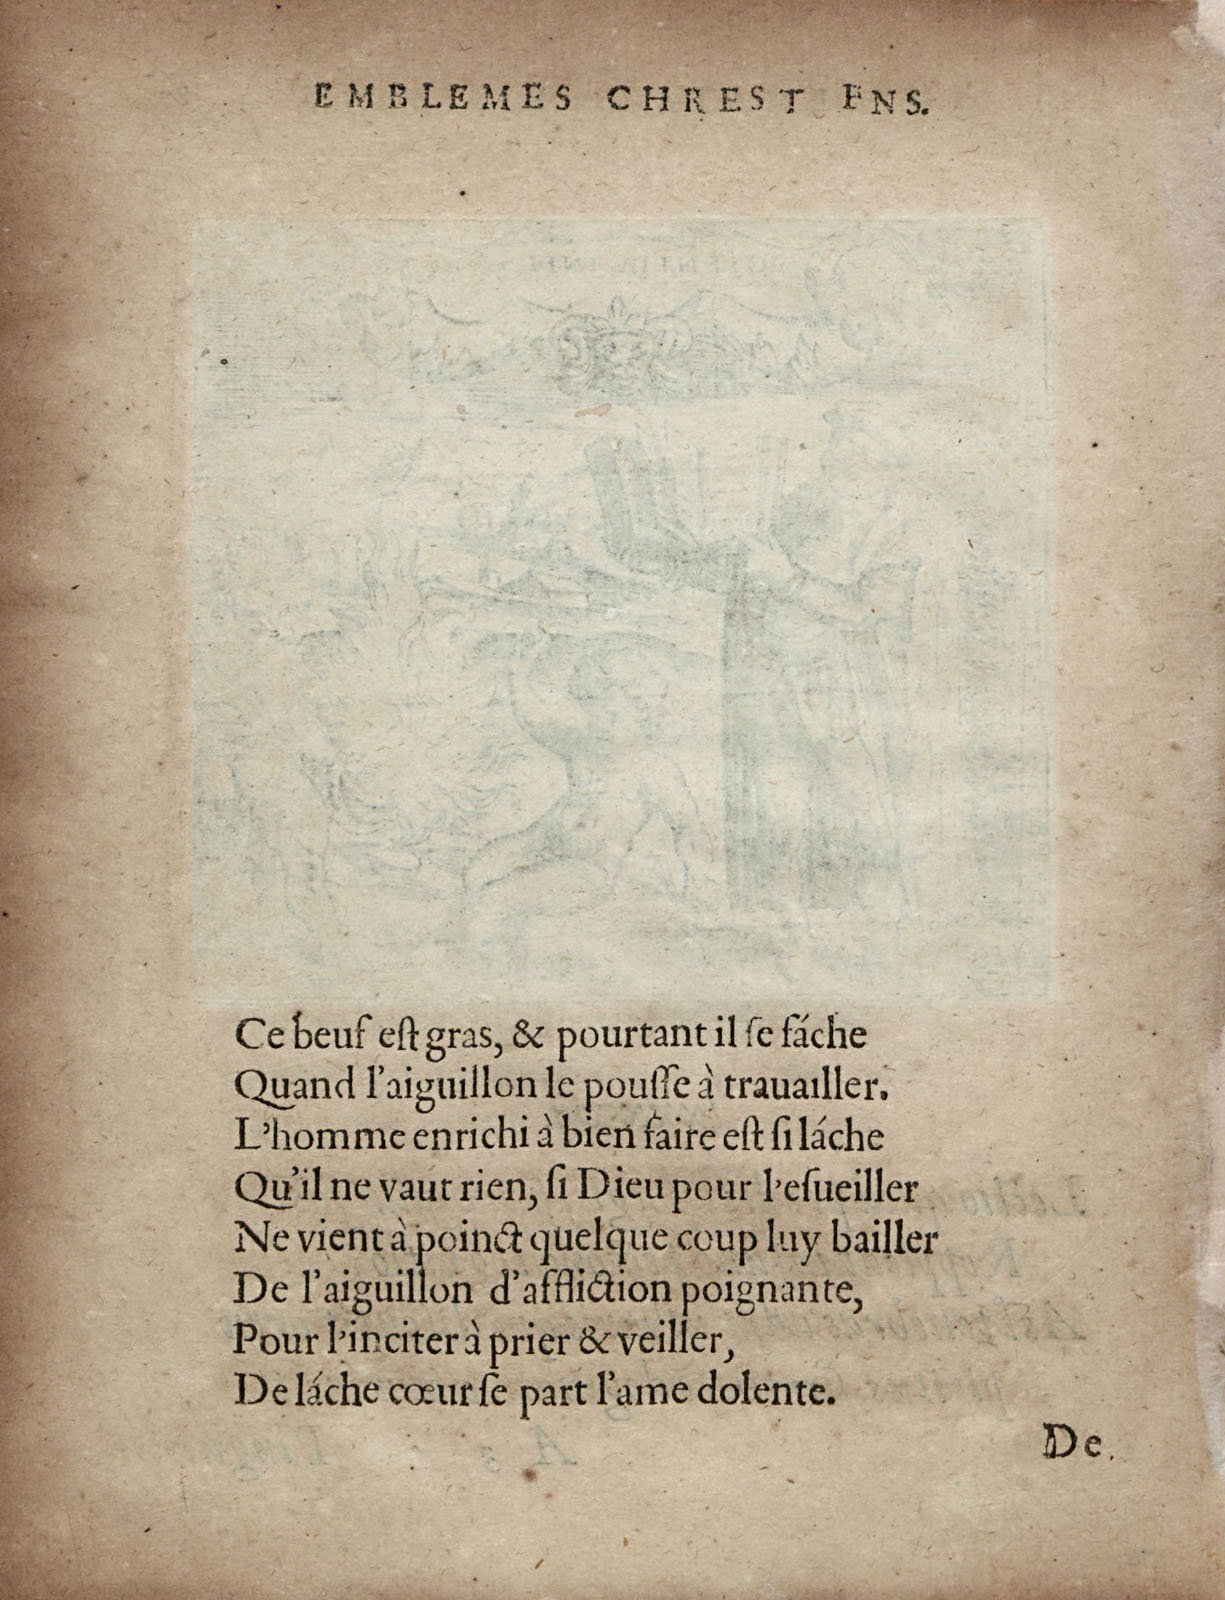 EMBLEMES CHREST ENS.
Ce beuf eſt gras, & pourtant il ſe fáche
Quand l'aiguillon le pouſſe à trauailler.
L'homme enrichi à bien faire eſt ſi láche
Qu'il ne vaut rien, ſi Dieu pour l'eſueiller
Ne vient à poinct quelque coup luy bailler
De l'aiguillon d'affliction poignante,
Pour l'inciter à prier & veiller,
De láche cœur ſe part l'ame dolente.
De